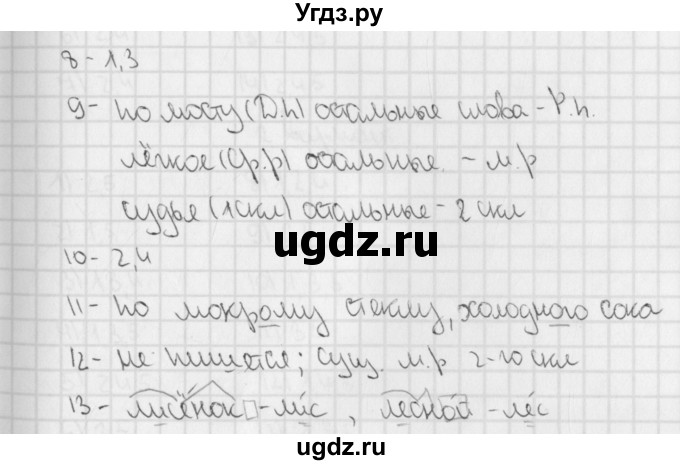 Угдз.ру
8 - 1,3
9 - по мосту (Д.п) остальные слова - Р.п.
лёгкое (ср.р) остальные - м.р
судья (1 скл) остальные - 2 скл
ugdz.ru
10 - 2,4
11 - по мокрому стеклу, холодного сока
12 - не пишется; сущ. м.р 2-го скл
13 - лисёнок - лис, лесной - лес
ugdz.ru